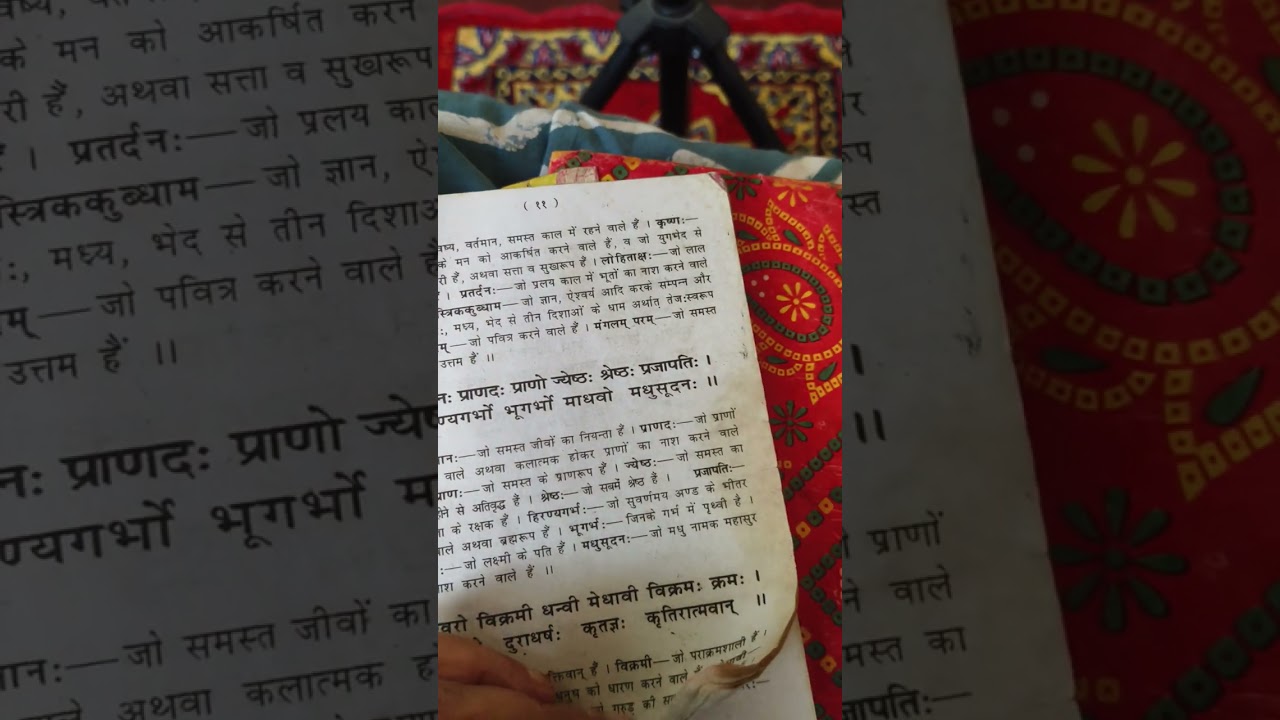 ( ११ )
वर्तमान, समस्त काल में रहने वाले हैं । कृष्णः—
के मन को आकर्षित करने वाले हैं, व जो युगभेद से
री हैं, अथवा सत्ता व सुखरूप हैं । लोहिताक्षः—जो लाल
। प्रतर्दनः—जो प्रलय काल में भूतों का नाश करने वाले
स्त्रिककुब्धाम—जो ज्ञान, ऐश्वर्य आदि करके सम्पन्न और
मध्य, भेद से तीन दिशाओं के धाम अर्थात् तेजःस्वरूप
म्—जो पवित्र करने वाले हैं । मंगलम् परम्—जो समस्त
उत्तम हैं ॥
नः प्राणदः प्राणो ज्येष्ठः श्रेष्ठः प्रजापतिः ।
ण्यगर्भो भूगर्भो माधवो मधुसूदनः ॥
नः—जो समस्त जीवों का नियन्ता हैं । प्राणदः—जो प्राणों
वाले अथवा कलात्मक होकर प्राणों का नाश करने वाले
जो समस्त के प्राणरूप हैं । ज्येष्ठः—जो समस्त का
से अतिवृद्ध हैं । श्रेष्ठः—जो सबमें श्रेष्ठ हैं । प्रजापतिः—
के रक्षक हैं । हिरण्यगर्भः—जो सुवर्णमय अण्ड के भीतर
अथवा ब्रह्मरूप हैं । भूगर्भः—जिनके गर्भ में पृथ्वी है ।
जो लक्ष्मी के पति हैं । मधुसूदनः—जो मधु नामक महासुर
करने वाले हैं ॥
वरो विक्रमी धन्वी मेधावी विक्रमः क्रमः ।
दुराधर्षः कृतज्ञः कृतिरात्मवान् ॥
हैं । विक्रमी—जो पराक्रमशाली हैं ।
को धारण करने वाले
गरुड़ की